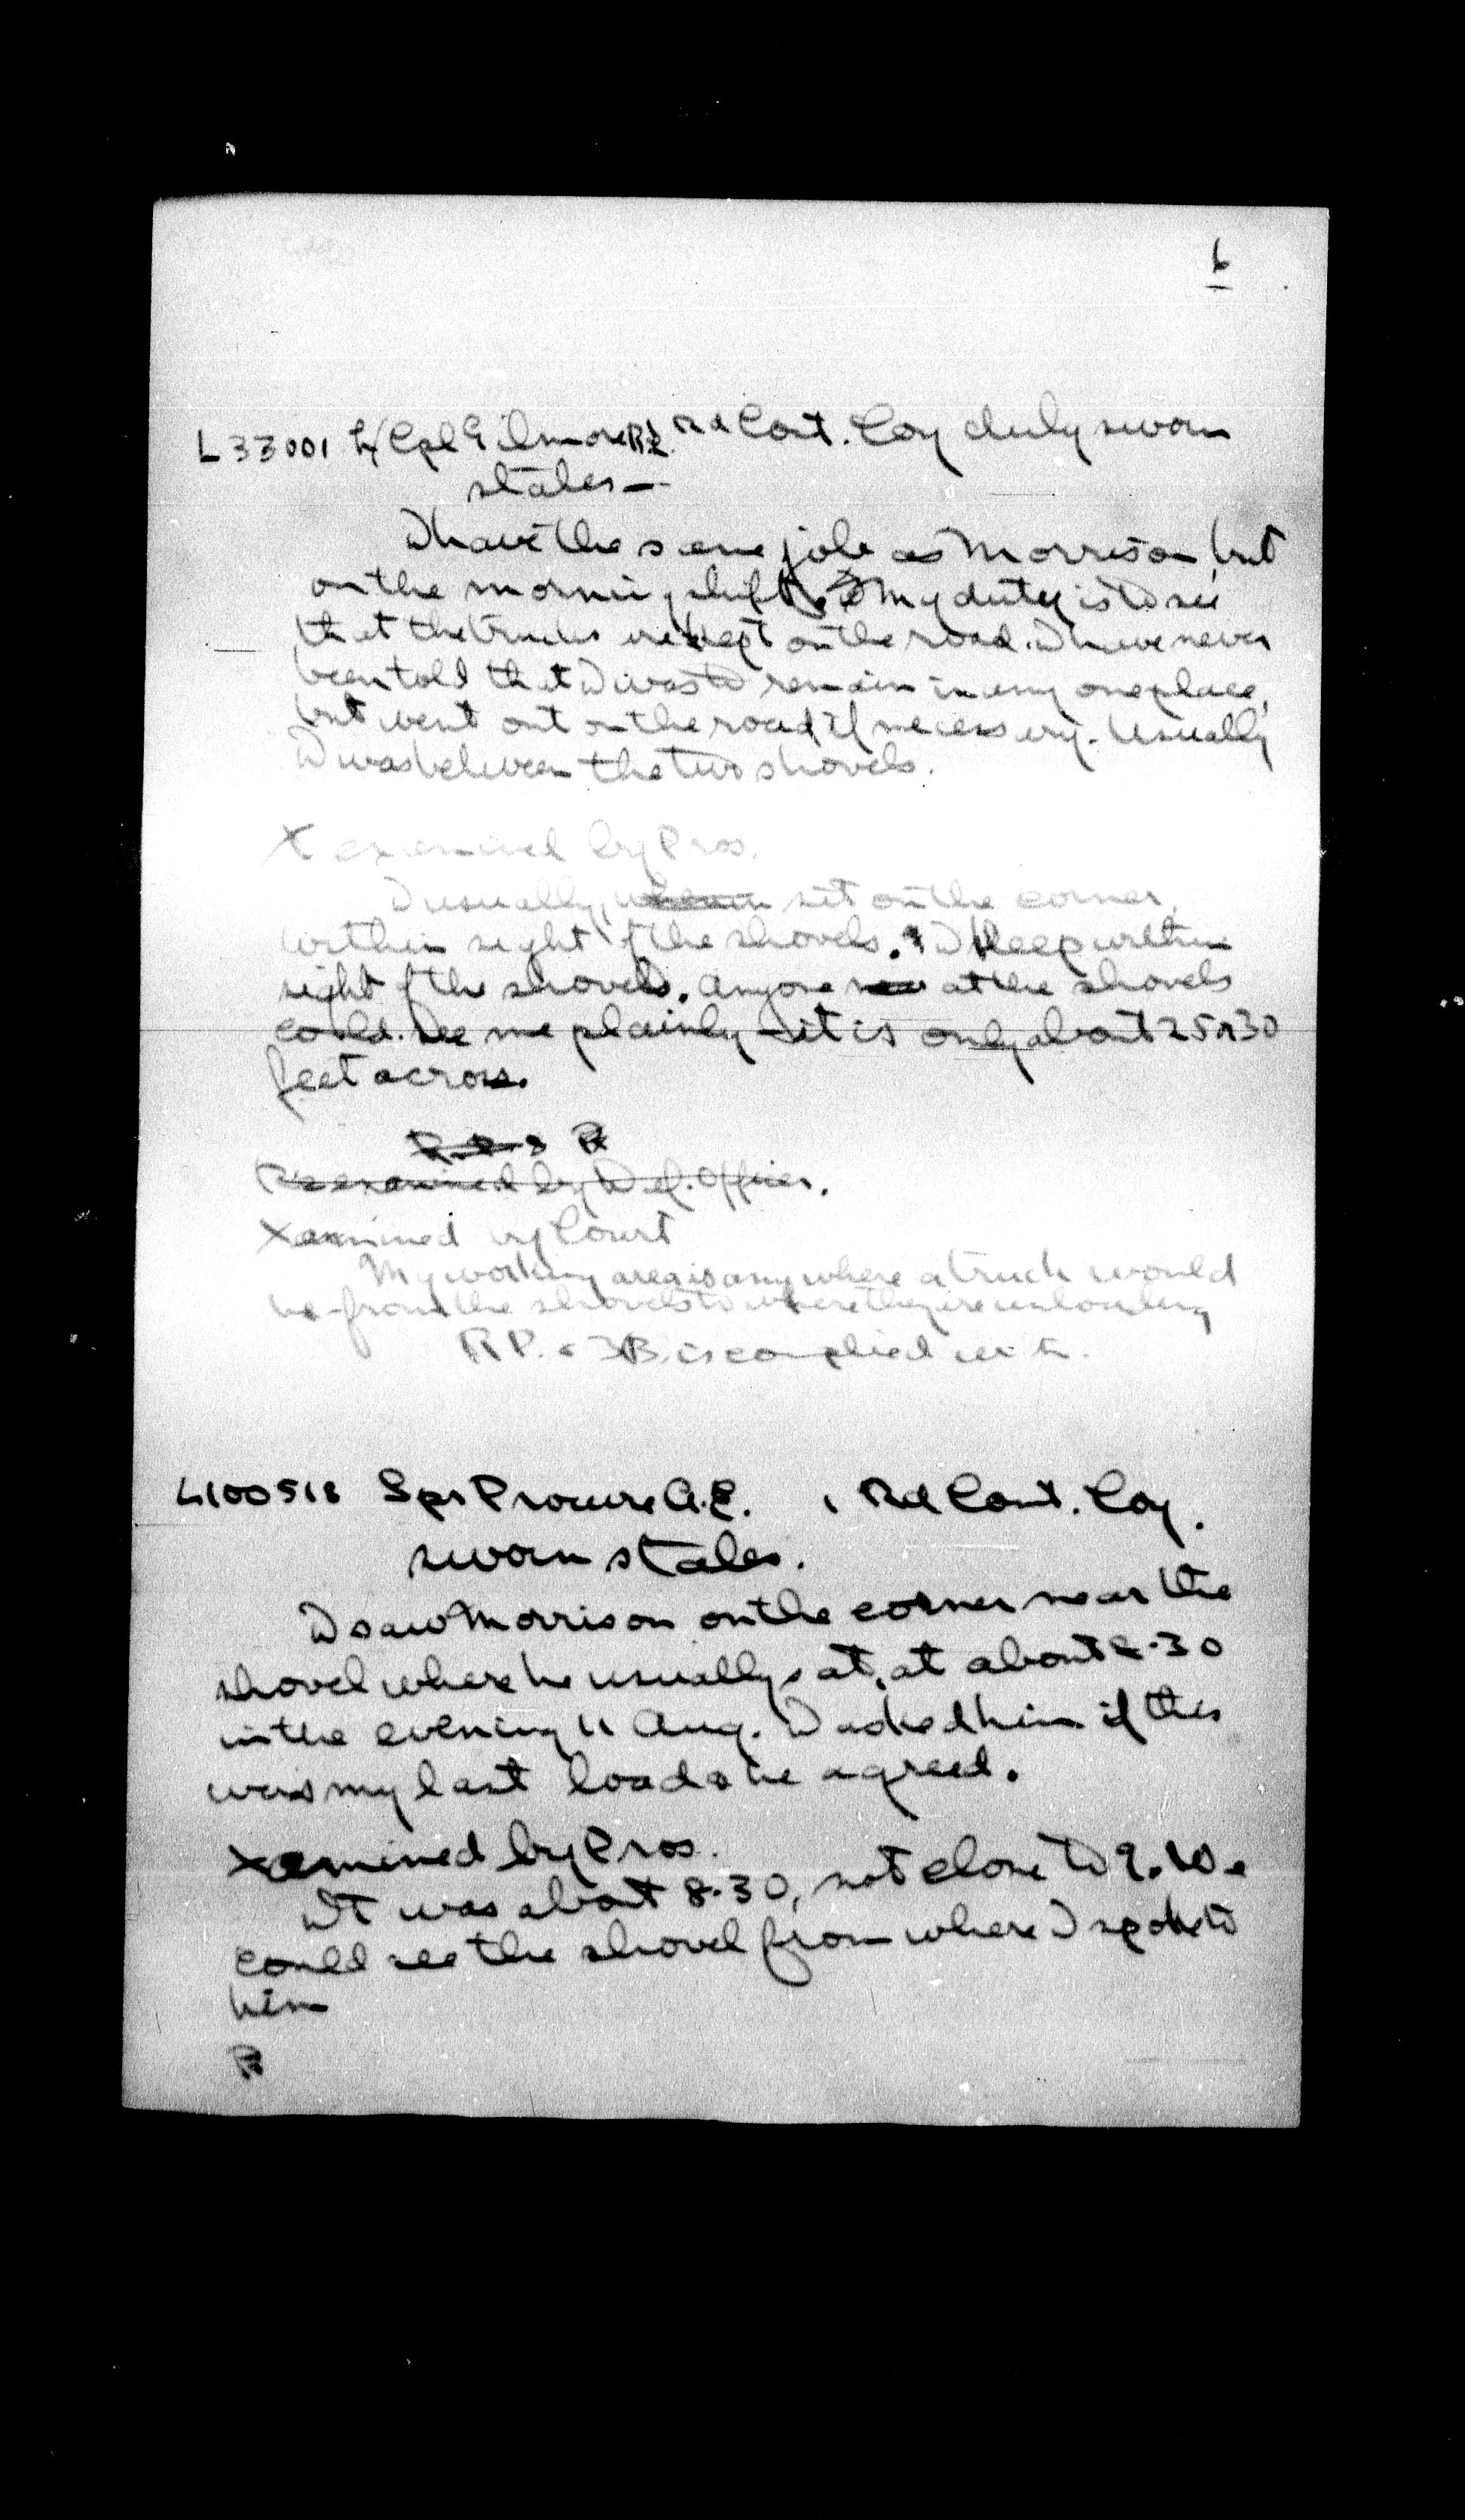 6
L33001 L/Cpl Gilmore R.E. Rd Const. Coy duly sworn
states —
I have the same job as Morrison, but
on the morning shift. My duty is to see
that the trucks are kept on the road. I have never
been told that I was to remain in any one place,
but went out on the road if necessary. Usually
I was between the two shovels.
X examined by Pros.
I usually, sit on the corner,
within sight of the shovels. I keep within
sight of the shovels. Anyone at the shovels
could see me plainly - it is only about 25 or 30
feet across.
Reexamined by Def. Officer.
Xamined by Court
My working area is anywhere a truck would
be - from the shovels to where they are unloading
RP. 83B. is complied with.
L100518 Spr Procure A.E. 1 Rd Const. Coy.
sworn states.
I saw Morrison on the corner near the
shovel where he usually sat, at about 8.30
in the evening 11 Aug. I asked him if this
was my last load & he agreed.
Xamined by Pros.
It was about 8.30, not close to 9.10.
could see the shovel from where I spoke to
him